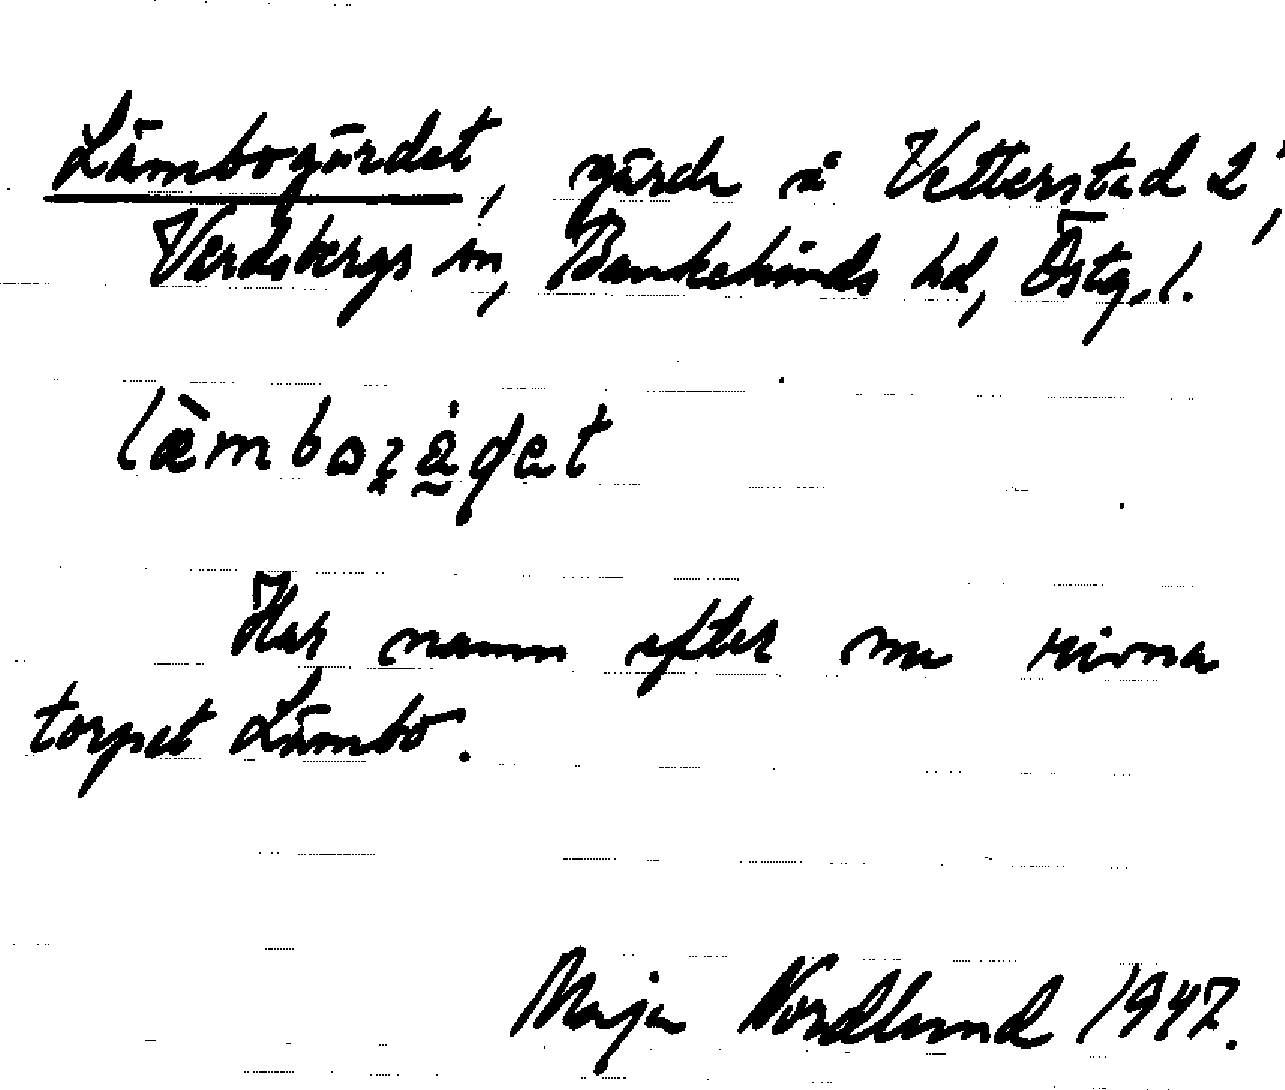 Lämbogärdet, gärde å Vetterstad 2,
Värdsbergs sn, Bankekinds hd, Östg. l.
læ̀mboʒå̱dət
Har namn efter nu rivna
torpet Lämbo.
Maja Nordlund 1947.